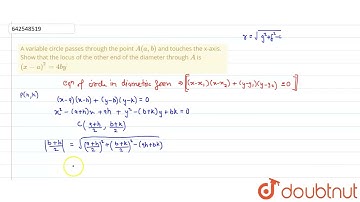 642548519
A variable circle passes through the point A(a, b) and touches the x-axis.
Show that the locus of the other end of the diameter through A is
(x − a)² = 4by
r = √(g²+f²−c)
eqⁿ of circle in diametric form ⇒ [(x-x₁)(x-x₂) + (y-y₁)(y-y₂) = 0]
P(h,k)
(x-a)(x-h) + (y-b)(y-k) = 0
x² - (a+h)x + ah + y² - (b+k)y + bk = 0
C((a+h)/2, (b+k)/2)
|(b+k)/2| = √(((a+h)/2)² + ((b+k)/2)² - (ah+bk))
doubtnut